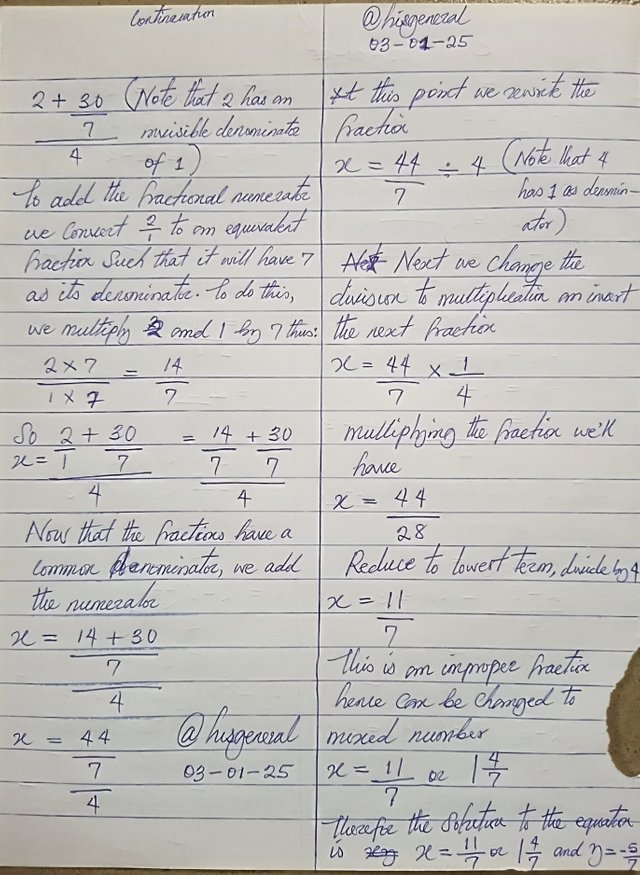 Continuation
@hisgeneral
03-01-25
2 + 30 (Note that 2 has an
7 invisible denominator
4 of 1)
To add the fractional numerator
we convert 2/1 to an equivalent
fraction such that it will have 7
as its denominator. To do this,
we multiply 2 and 1 by 7 thus:
2 x 7 = 14
1 x 7 7
So 2 + 30 = 14 + 30
x = 1 7 7 7
4 4
Now that the fractions have a
common denominator, we add
the numerator
x = 14 + 30
7
4
x = 44 @hisgeneral
7 03-01-25
4
At this point we rewrite the
fraction
x = 44 ÷ 4 (Note that 4
7 has 1 as denomin-
ator)
Next we change the
division to multiplication an invert
the next fraction
x = 44 x 1
7 4
multiplying the fraction we'll
have
x = 44
28
Reduce to lowest term, divide by 4
x = 11
7
This is an improper fraction
hence can be changed to
mixed number
x = 11 or 1 4/7
7
Therefore the solution to the equation
is x = 11/7 or 1 4/7 and y = -5/7